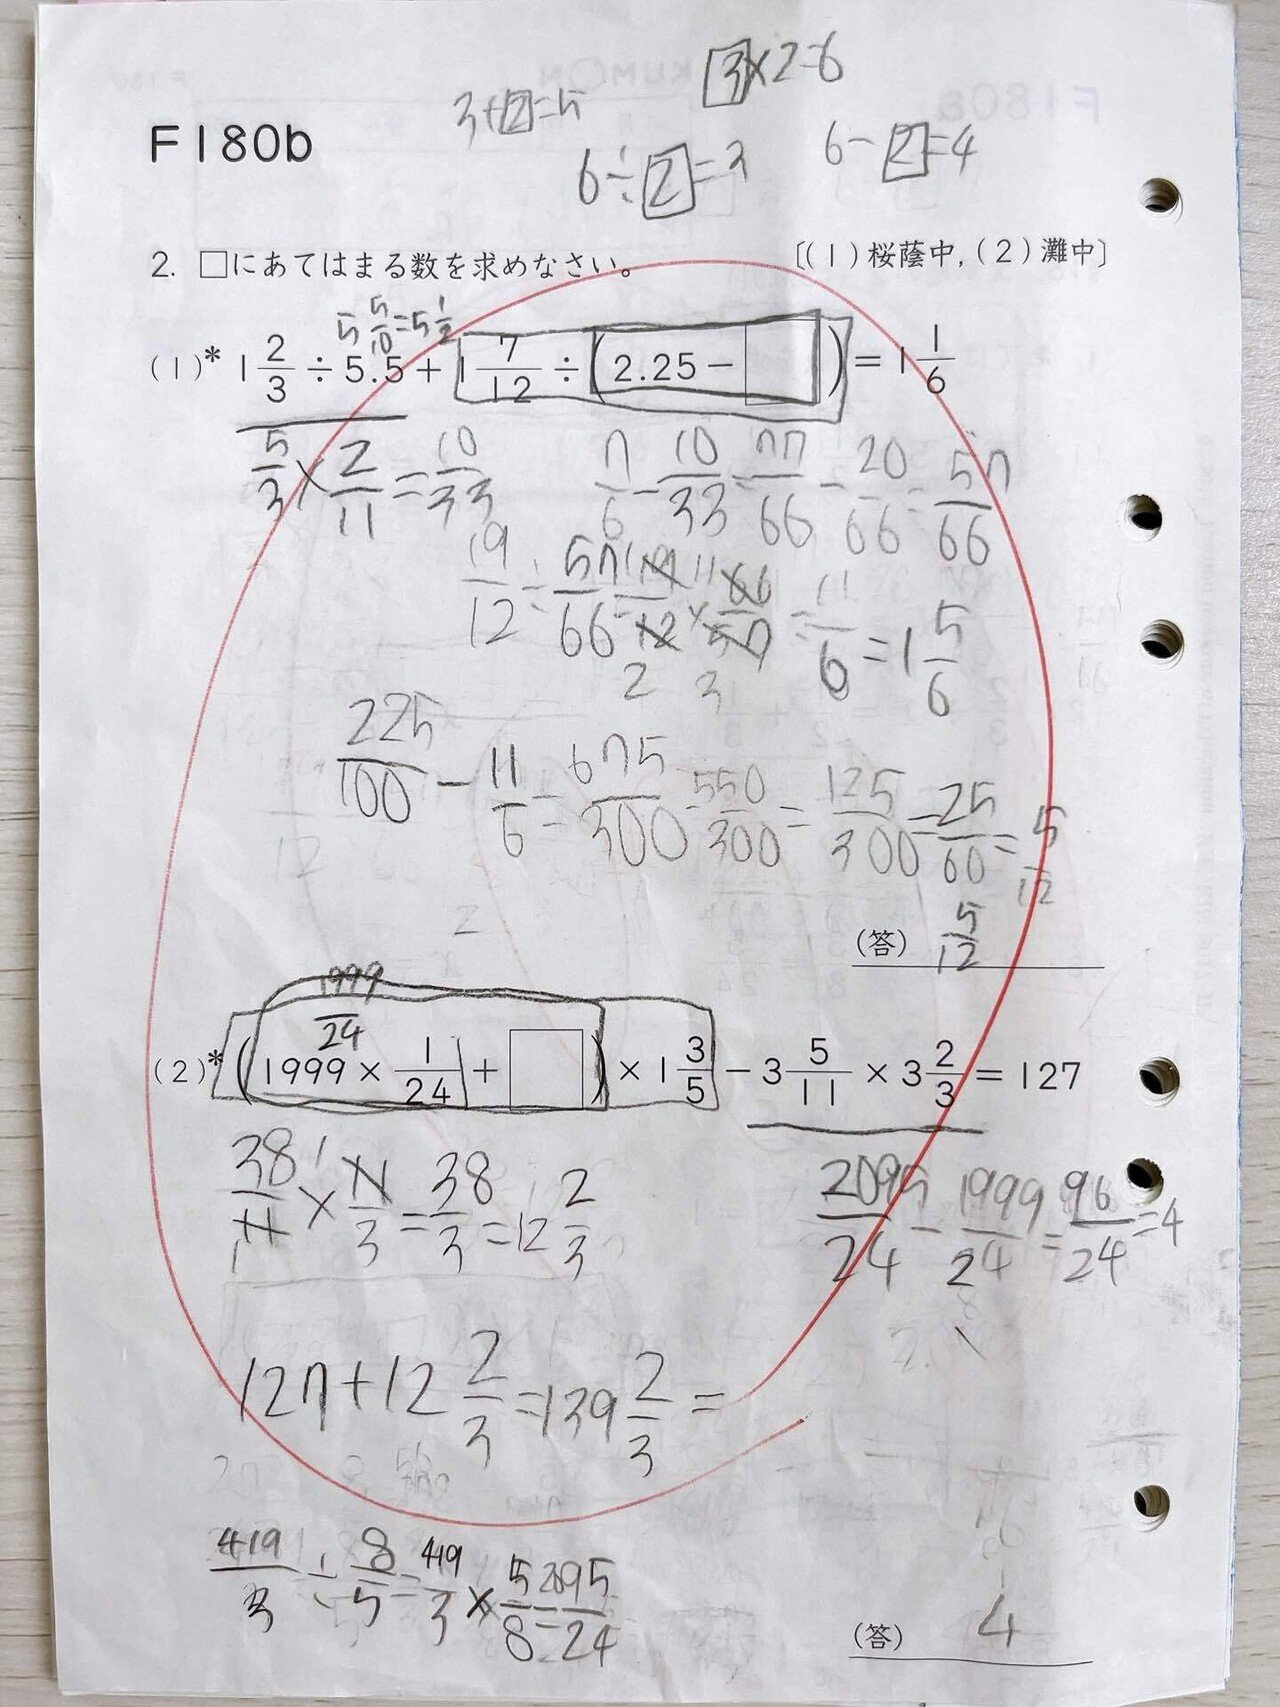 3×2=6
3+2=5
F180b
6÷2=3
6-2=4
2. □にあてはまる数を求めなさい。 〔(1)桜蔭中,(2)灘中〕
5 5/10=5 1/2
(1)* 1 2/3 ÷ 5.5 + 1 7/12 ÷ (2.25 − □) = 1 1/6
5/3 × 2/11 = 10/33 7/6 − 10/33 = 77/66 − 20/66 = 57/66
19/12 ÷ 57/66 = 19/12 × 66/57 = 11/6 = 1 5/6
11
2 3
225/100 − 11/6 = 675/300 − 550/300 = 125/300 = 25/60 = 5/12
(答) 5/12
1999/24
(2)* (1999 × 1/24 + □) × 1 3/5 − 3 5/11 × 3 2/3 = 127
38/11 × 11/3 = 38/3 = 12 2/3 2095/24 − 1999/24 = 96/24 = 4
1
1
127+12 2/3 = 139 2/3 =
419/3 ÷ 8/5 = 419/3 × 5/8 = 2095/24
(答) 4